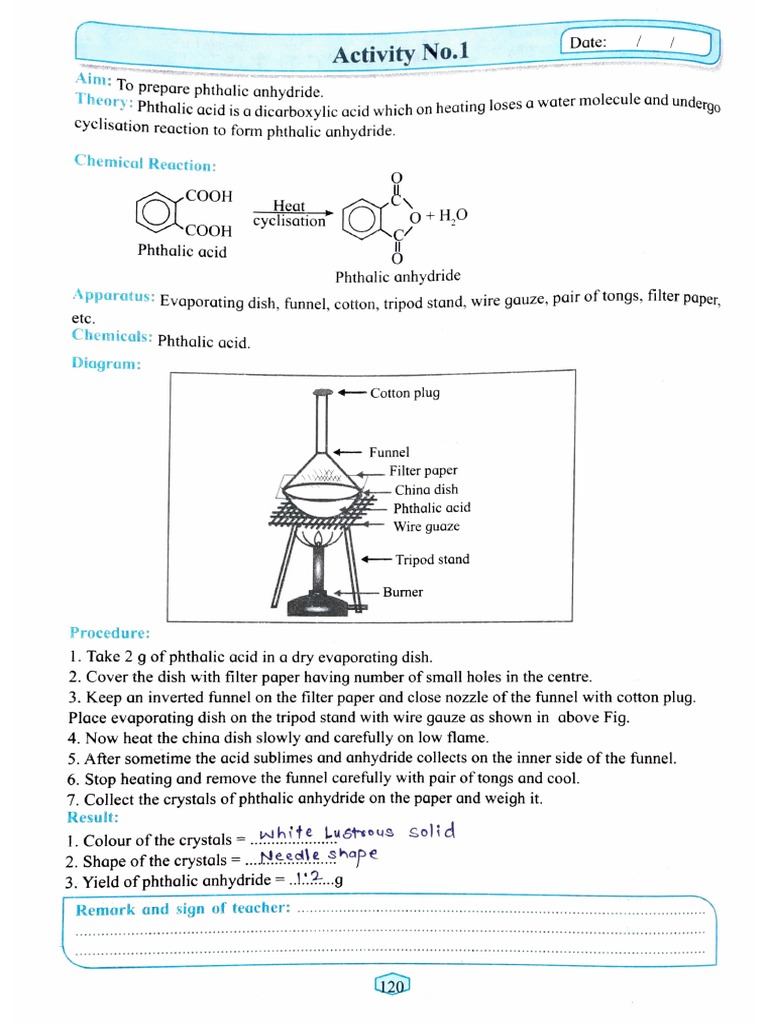 Activity No.1
Date: / /
Aim: To prepare phthalic anhydride.
Theory: Phthalic acid is a dicarboxylic acid which on heating loses a water molecule and undergo
cyclisation reaction to form phthalic anhydride.
Chemical Reaction:
COOH
COOH
Phthalic acid
Heat
cyclisation
O
C
O + H₂O
C
O
Phthalic anhydride
Apparatus: Evaporating dish, funnel, cotton, tripod stand, wire gauze, pair of tongs, filter paper,
etc.
Chemicals: Phthalic acid.
Diagram:
Cotton plug
Funnel
Filter paper
China dish
Phthalic acid
Wire guaze
Tripod stand
Burner
Procedure:
1. Take 2 g of phthalic acid in a dry evaporating dish.
2. Cover the dish with filter paper having number of small holes in the centre.
3. Keep an inverted funnel on the filter paper and close nozzle of the funnel with cotton plug.
Place evaporating dish on the tripod stand with wire gauze as shown in above Fig.
4. Now heat the china dish slowly and carefully on low flame.
5. After sometime the acid sublimes and anhydride collects on the inner side of the funnel.
6. Stop heating and remove the funnel carefully with pair of tongs and cool.
7. Collect the crystals of phthalic anhydride on the paper and weigh it.
Result:
1. Colour of the crystals = White Lustrous solid
2. Shape of the crystals = Needle shape
3. Yield of phthalic anhydride = 1.2 g
Remark and sign of teacher:
120